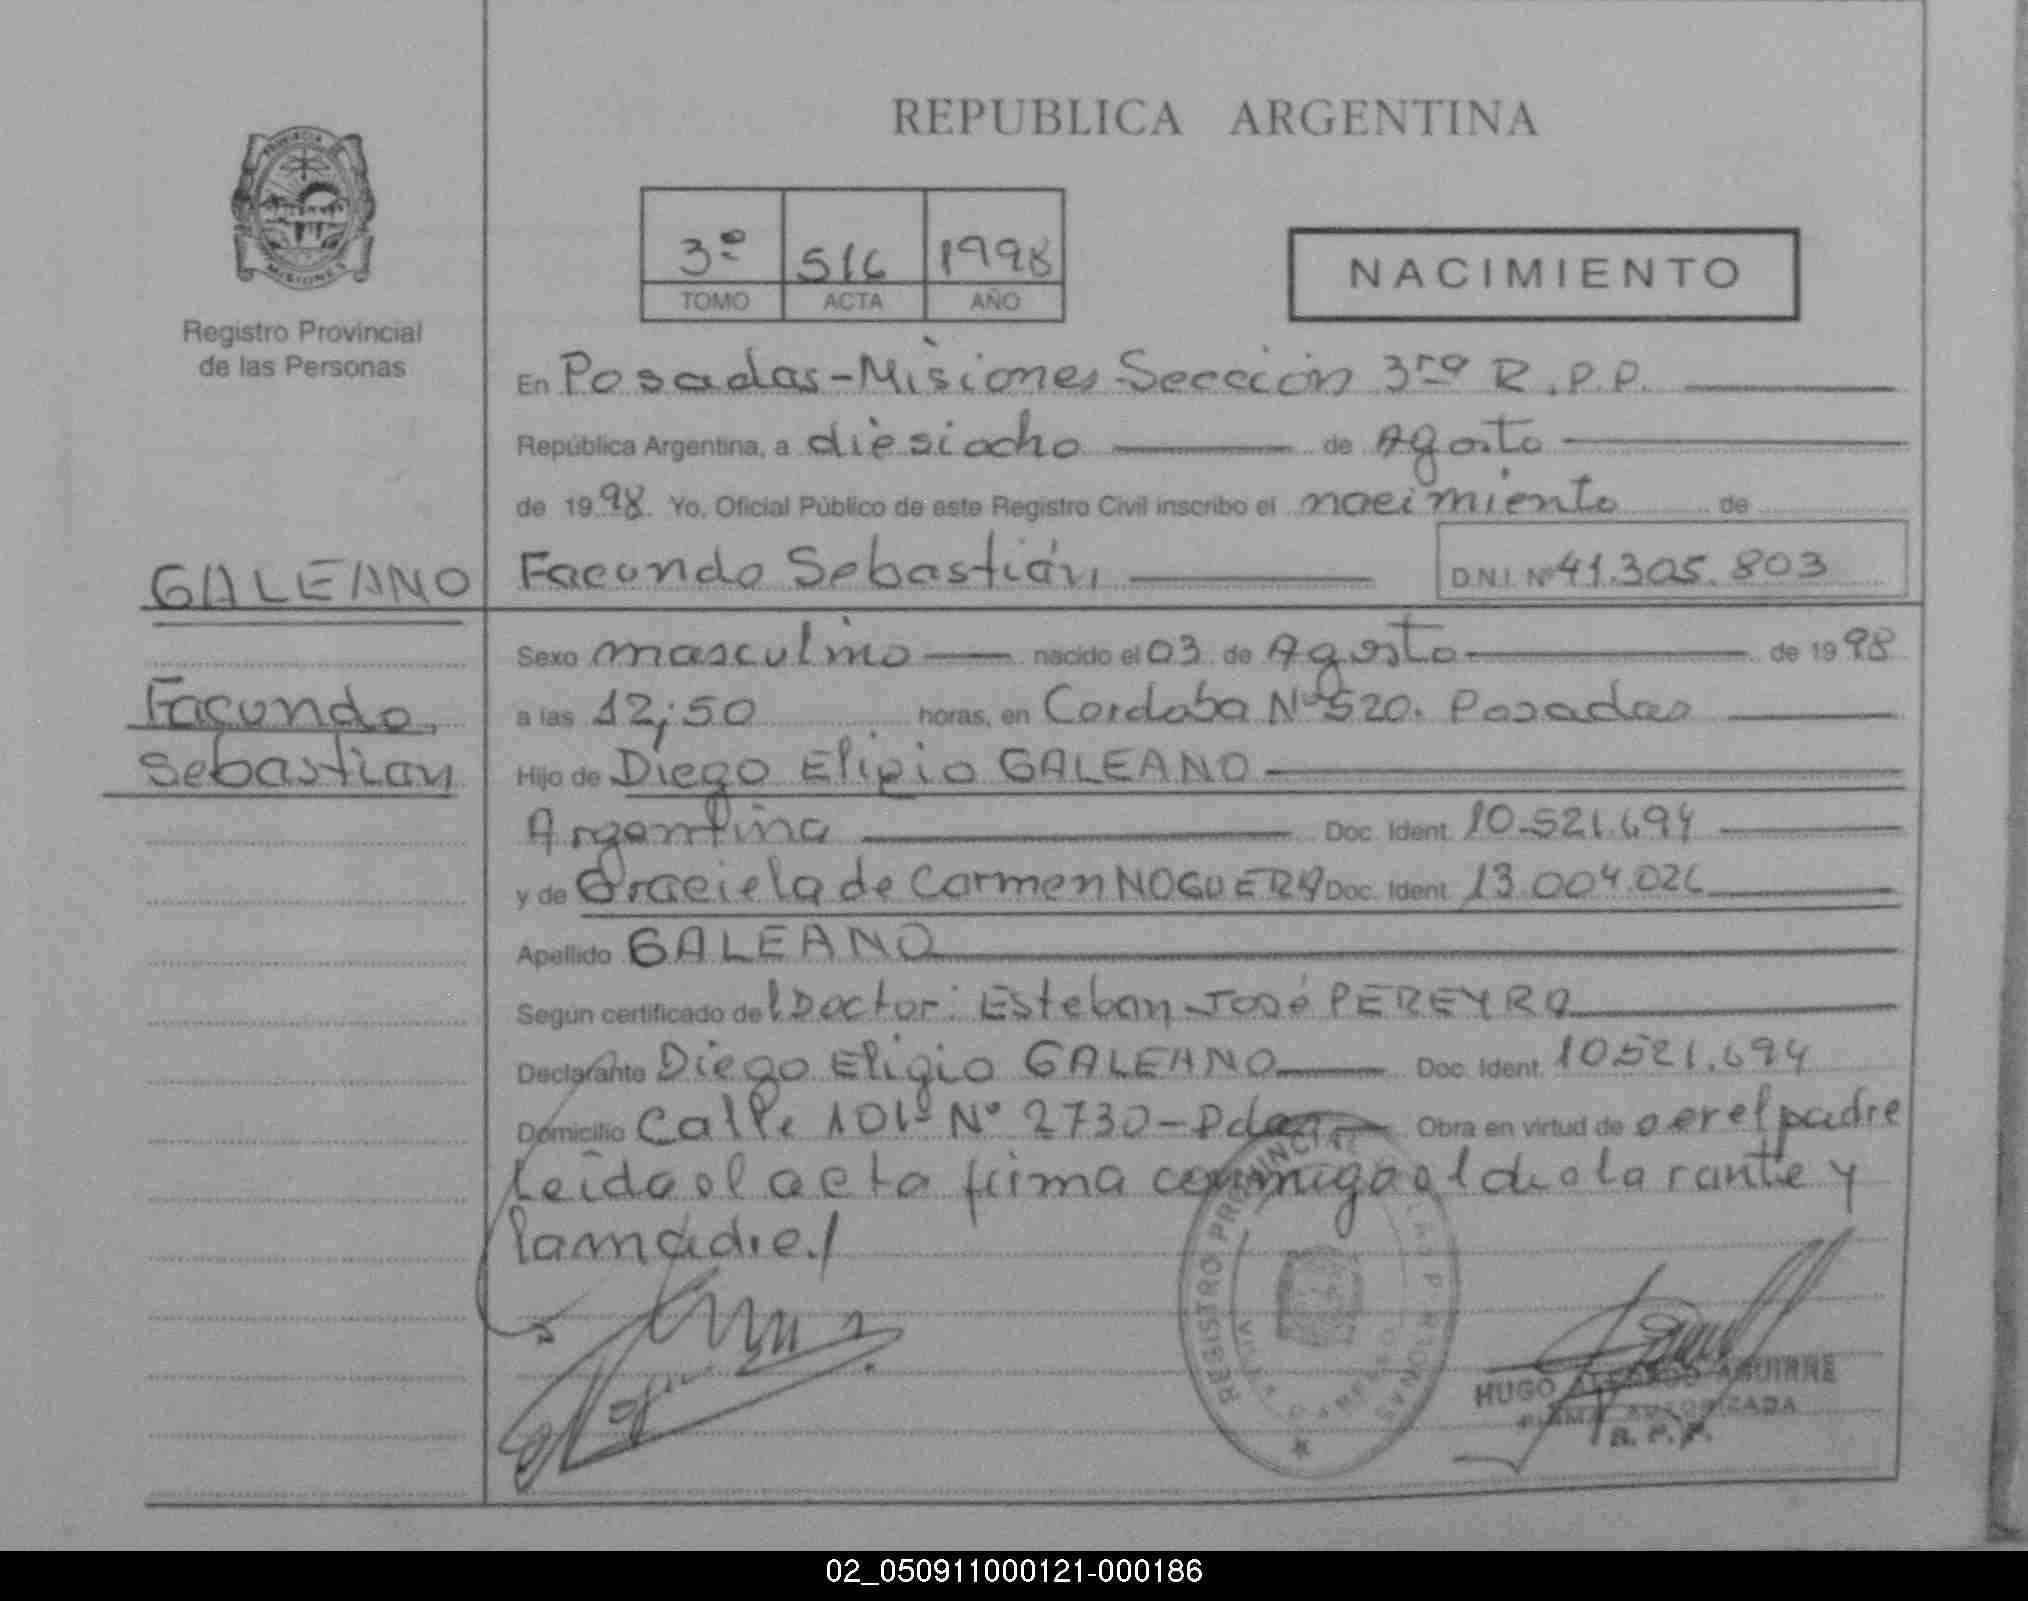 REPUBLICA ARGENTINA
PROVINCIA
MISIONES
Registro Provincial
de las Personas
3º 516 1998
TOMO ACTA AÑO
NACIMIENTO
En Posadas-Misiones-Sección 3ra R.P.P.
República Argentina, a diesiocho de Agosto
de 1998 Yo, Oficial Público de este Registro Civil inscribo el nacimiento de
GALEANO
Facundo Sebastián D.N.I. Nº 41.305.803
Sexo masculino nacido el 03 de Agosto de 1998
Facundo
a las 12;50 horas, en Cordoba Nº 520. Posadas
Sebastian
Hijo de Diego Eligio GALEANO
Argentina Doc. Ident. 10.521.694
y de Graciela de Carmen NOGUERA Doc. Ident. 13.004.026
Apellido GALEANO
Según certificado del Doctor: Esteban José PEREYRA
Declarante Diego Eligio GALEANO Doc. Ident. 10521.694
Domicilio Calle 101 Nº 2730-Pdas Obra en virtud de ser el padre
Leida el acta firma conmigo el declarante y
la madre./
REGISTRO PROVINCIAL DE LAS PERSONAS
HUGO ALFREDO AGUIRRE
FIRMA AUTORIZADA
R. P. P.
02_050911000121-000186